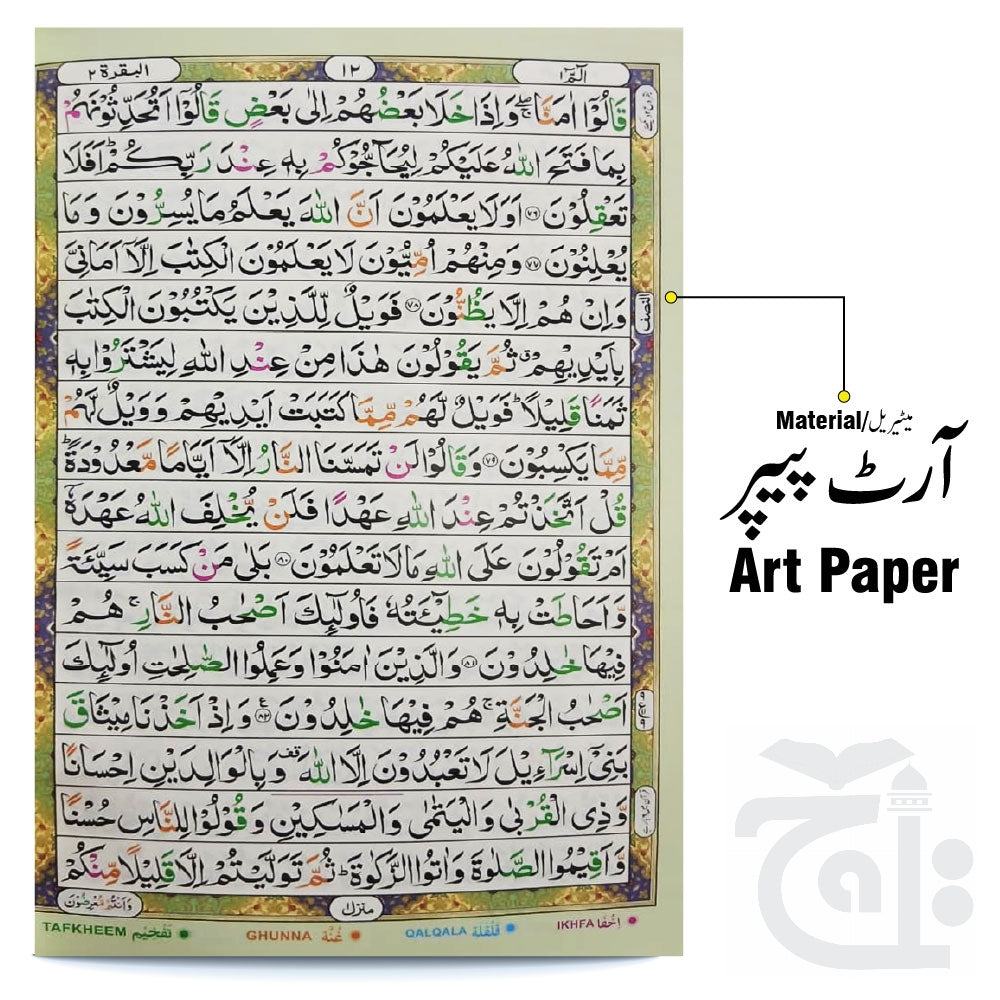 البقرة ٢
١٢
الٓمّٓ ١
قَالُوْۤا اٰمَنَّا ۖۚ وَاِذَا خَلَا بَعْضُهُمْ اِلٰى بَعْضٍ قَالُوْۤا اَتُحَدِّثُوْنَهُمْ
بِمَا فَتَحَ اللّٰهُ عَلَيْكُمْ لِيُحَآجُّوْكُمْ بِهٖ عِنْدَ رَبِّكُمْ ؕ اَفَلَا
تَعْقِلُوْنَ ﴿۷۶﴾ اَوَلَا يَعْلَمُوْنَ اَنَّ اللّٰهَ يَعْلَمُ مَا يُسِرُّوْنَ وَمَا
يُعْلِنُوْنَ ﴿۷۷﴾ وَمِنْهُمْ اُمِّيُّوْنَ لَا يَعْلَمُوْنَ الْكِتٰبَ اِلَّاۤ اَمَانِىَّ
وَاِنْ هُمْ اِلَّا يَظُنُّوْنَ ﴿۷۸﴾ فَوَيْلٌ لِّلَّذِيْنَ يَكْتُبُوْنَ الْكِتٰبَ
بِاَيْدِيْهِمْ ۗ ثُمَّ يَقُوْلُوْنَ هٰذَا مِنْ عِنْدِ اللّٰهِ لِيَشْتَرُوْا بِهٖ
ثَمَنًا قَلِيْلًا ؕ فَوَيْلٌ لَّهُمْ مِّمَّا كَتَبَتْ اَيْدِيْهِمْ وَوَيْلٌ لَّهُمْ
مِّمَّا يَكْسِبُوْنَ ﴿۷۹﴾ وَقَالُوْا لَنْ تَمَسَّنَا النَّارُ اِلَّاۤ اَيَّامًا مَّعْدُوْدَةً ؕ
قُلْ اَتَّخَذْتُمْ عِنْدَ اللّٰهِ عَهْدًا فَلَنْ يُّخْلِفَ اللّٰهُ عَهْدَهٗۤ
اَمْ تَقُوْلُوْنَ عَلَى اللّٰهِ مَا لَا تَعْلَمُوْنَ ﴿۸۰﴾ بَلٰى مَنْ كَسَبَ سَيِّئَةً
وَّاَحَاطَتْ بِهٖ خَطِيْٓئَتُهٗ فَاُولٰٓئِكَ اَصْحٰبُ النَّارِ ۚ هُمْ
فِيْهَا خٰلِدُوْنَ ﴿۸۱﴾ وَالَّذِيْنَ اٰمَنُوْا وَعَمِلُوا الصّٰلِحٰتِ اُولٰٓئِكَ
اَصْحٰبُ الْجَنَّةِ ۚ هُمْ فِيْهَا خٰلِدُوْنَ ﴿۸۲﴾ ع وَاِذْ اَخَذْنَا مِيْثَاقَ
بَنِىْۤ اِسْرَآءِيْلَ لَا تَعْبُدُوْنَ اِلَّا اللّٰهَ قف وَبِالْوَالِدَيْنِ اِحْسَانًا
وَّذِى الْقُرْبٰى وَالْيَتٰمٰى وَالْمَسٰكِيْنِ وَقُوْلُوْا لِلنَّاسِ حُسْنًا
وَّاَقِيْمُوا الصَّلٰوةَ وَاٰتُوا الزَّكٰوةَ ؕ ثُمَّ تَوَلَّيْتُمْ اِلَّا قَلِيْلًا مِّنْكُمْ
وَاَنْتُمْ مُّعْرِضُوْنَ
منزل ١
النصف
TAFKHEEM تَفْخِيْم
GHUNNA غُنَّة
QALQALA قَلْقَلَة
IKHFA اِخْفَا
Material/میٹیریل
آرٹ پیپر
Art Paper
تاج